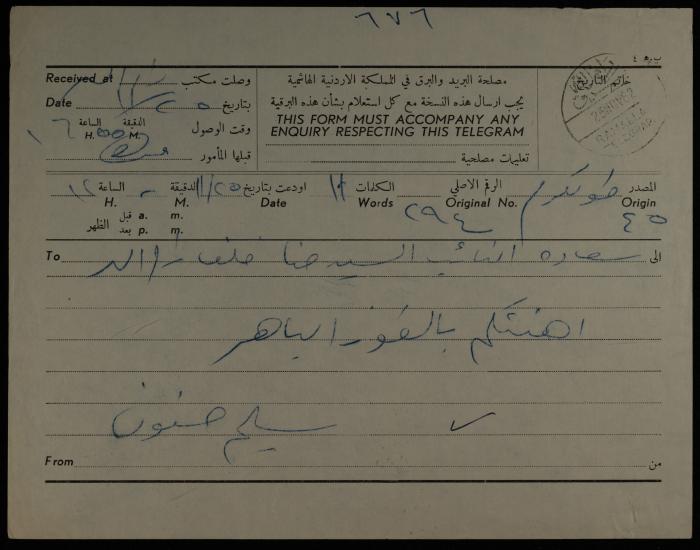 ٦٧٦
ب.ر.ه ٤
Received at وصلت مكتب رام الله
Date ٢٥/١١ بتاريخ
الساعة الدقيقة وقت الوصول
H. M.
قبلها المأمور
مصلحة البريد والبرق في المملكة الاردنية الهاشمية
يجب ارسال هذه النسخة مع كل استعلام بشأن هذه البرقية
THIS FORM MUST ACCOMPANY ANY
ENQUIRY RESPECTING THIS TELEGRAM
تعليمات مصلحية
خاتم التاريخ
RAMALLAH
المصدر طولكرم الرقم الاصلي الكلمات ١٢ اودعت بتاريخ ٢٥/١١ الدقيقة - الساعة ١٢
Origin ٤٥ Original No. ٢٩٤ Words Date M. H.
قبل a. m.
الظهر
بعد p. m.
To سعادة النائب السيد حنا خلف رام الله الى
اهنئكم بالفوز الباهر
سليم حنون
From من